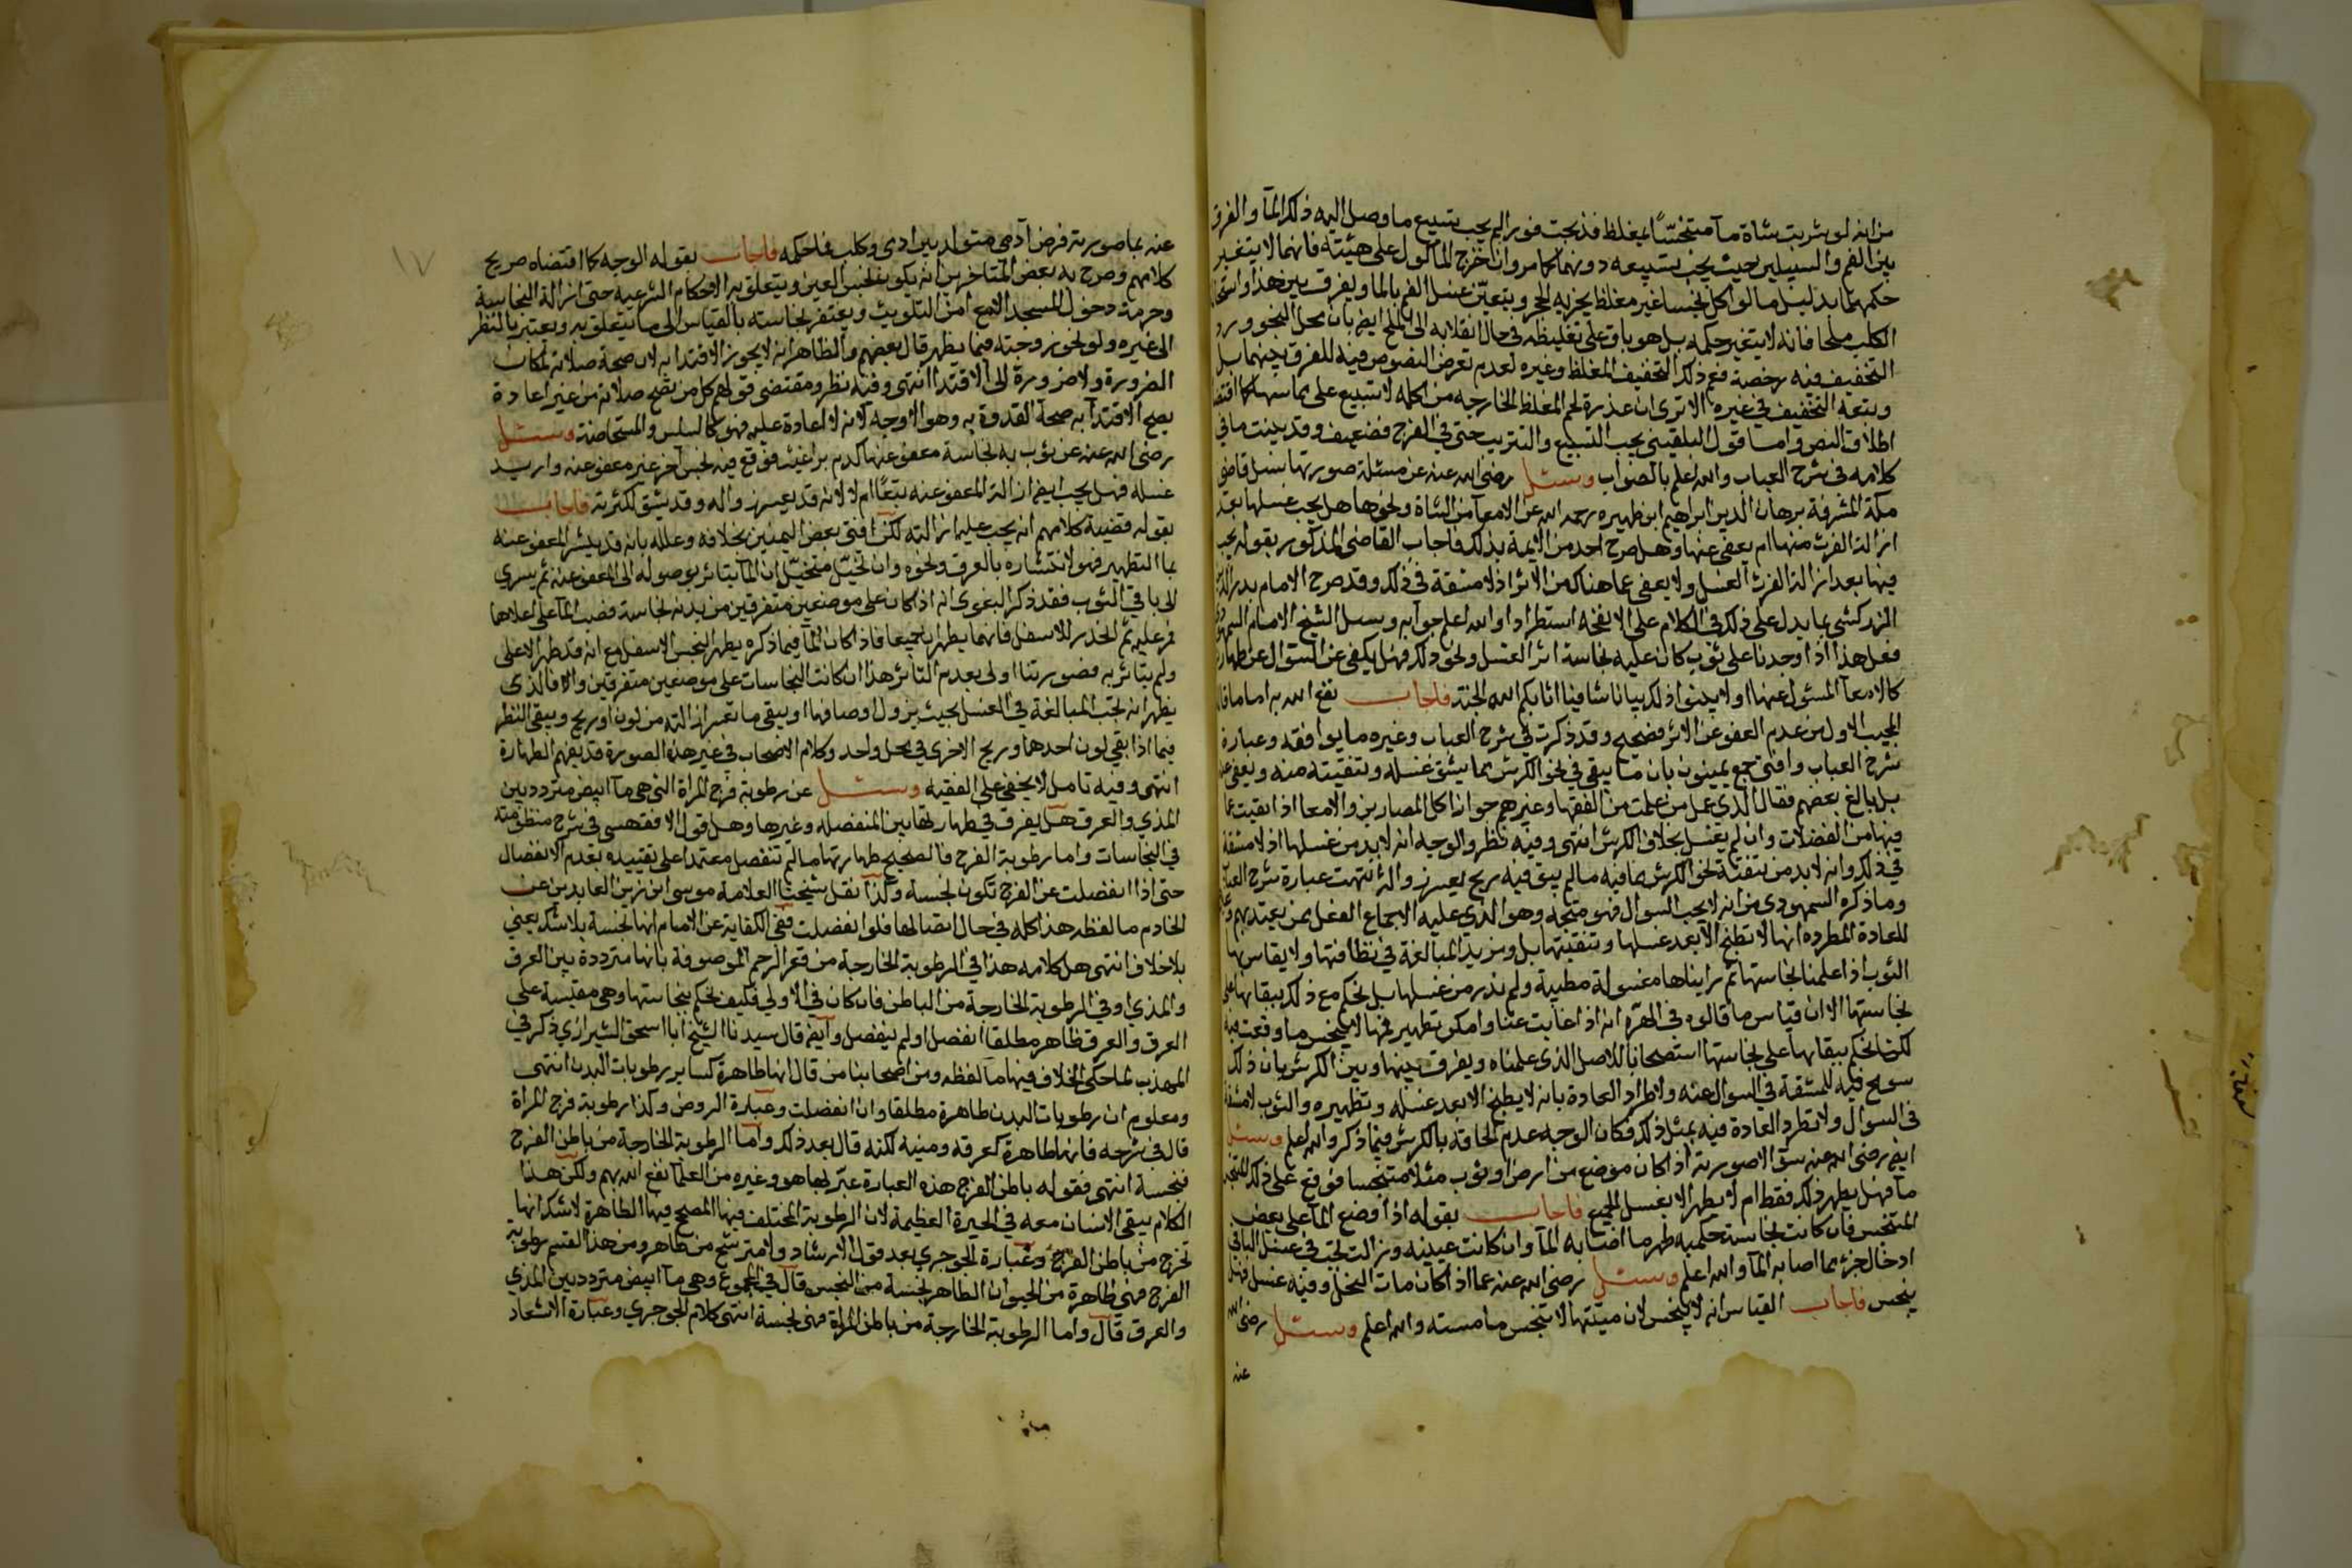 من انه لو شربت شاة مآ متنجسًا بمغلظ فذبحت فورا لم يجب تسبيع ما وصل اليه ذلك المآ والفرق
بين الفم والسبيلين حيث يجب تسبيعه دونهما كما مر وان خرج المأكول على هيئته فانهما لا يتغير
حكمهما بدليل ما لو اكل نجسا غير مغلظ يجزيه الحجر ويتعيّن غسل الفم بالما ويفرق بين هذا واستحالة
الكلب ملحا فانه لا يتغير حكمه بل هو باق على تغليظه في حال انقلابه الى الملح ايض بان محل النجو ورد
التخفيف فيه رخصة فعم ذلك التخفيف المغلظ وغيره لعدم تعرض النصوص فيه للفرق بينهما بل
وبتعه التخفيف في غيره الا ترى ان عذرة لحم المغلظ الخارجه من اكله لا تسبيع على مماسها كما اقتضاه
اطلاق النص واما قول البلقيني يجب التسبيع والتتريب حتى في الفرج فضعيف وقد بينت ما في
كلامه في شرح العباب والله اعلم بالصواب وسئل رضى الله عنه عن مسئلة صورتها سئل قاضي
مكة المشرفة برهان الدين ابراهيم ابن ظهيره رحمه الله عن الامعآ من الشاة ونحوها هل يجب غسلها بعد
ازالة الفرث منها ام يعفى عنها وهل صرح احد من الايمة بذلك فاجاب القاضي المذكور بقوله يجب
فيها بعد ازالة الفرث الغسل ولا يعفى عما هناك من الاثر اذ لا مشقة في ذلك وقد صرح الامام بدر الدين
الزركشي بما يدل على ذلك في الكلام على الانفحه استطرادا والله اعلم جوابه وسيل الشيخ الامام السمهودي
فعل هذا اذا وجدنا على ثوب كان عليه نجاسة اثر الغسل ونحو ذلك فهل يكفى عن السؤال عن طهارته
كالامعآ المسئول عنها اولا بينوا ذلك بيانا شافيا اثابكم الله الجنة فاجاب نفع الله به اما ما قاله
المجيب الاول من عدم العفو عن الاثر فصحيح وقد ذكرت في شرح العباب وغيره ما يوافقه وعبارة
شرح العباب وافتى جمع يمنيون بان ما يبقى في نحو الكرش مما يشق غسله وتنقيته منه ويعفى عنه
بل بالغ بعضهم فقال الذي عمل من علمت من الفقها وغيرهم جواز اكل المصارين والامعا اذا نقيت عما
فيها من الفضلات وان لم يغسل بخلاف الكرش انتهى وفيه نظر والوجيه انه لابد من غسلها اذ لا مشقة
في ذلك وانه لابد من تنقية نحو الكرش مما فيه مالم يبق فيه ريح يعسر زواله انتهت عبارة شرح العباب
وما ذكره السمهودى من انه لا يجب السوال فهو متجه وهو الذي عليه الاجماع الفعل ممن يعتد بهم
للعادة المطرده انها لا تطبخ الا بعد غسلها وتنقيتها بل ومزيد المبالغة في نظافتها ولا يقاس بها
الثوب اذا علمنا نجاستها ثم رايناها مغسولة مطيبة ولم ندر من غسلها بل نحكم مع ذلك ببقائها على
نجاستها الا ان قياس ما قالوه في الهرّة انه اذا غابت عنا وامكن تطهير فمها لا ينجس ما وقعت فيه
لكن نحكم ببقائها على نجاستها استصحابا للاصل الذي علمناه ويفرق بينها وبين الكرش بان ذلك
سومح فيه للمشقة في السوال عنه ولاطراد العادة بانه لا يطبخ الا بعد غسله وتطهيره والثوب لا مشقة
في السوال ولا تطرد العادة فيه بمثل ذلك فكان الوجيه عدم الحاقه بالكرش فيما ذكر والله اعلم وسئل
ايض رضى الله عنه سؤالا صورته اذا كان موضع من ارض او ثوب مثلا متنجسا فوقع على ذلك المتنجس
مآ فهل يطهر ذلك فقط ام لا يطهر الا بغسل الجميع فاجاب بقوله اذا وضع المآ على بعض
المتنجس فان كانت نجاسته حكمية طهر ما اصابه المآ وان كانت عينية وزالت يجب في غسل الباقي
ادخال جزء مما اصابه المآ والله اعلم وسئل رضى الله عنه عما اذا كان مات النحل وفيه عسل فهل
ينجس فاجاب القياس انه لا ينجس لان ميتتها لا تنجس ما مسته والله اعلم وسئل رضى الله
عنه
١٧
عنه بما صورته فرض آدمي متولد بين ادمى وكلب فما حكمه فاجاب بقوله الوجه كما اقتضاه صريح
كلامهم وصرح به بعض المتاخرين انه يكون نجس العين ويتعلق به الاحكام الشرعيه حتى ازالة النجاسة
وحرمة دخول المسجد الا مع امن التلويث ويغتفر نجاسته بالقياس الى ما يتعلق به ويعتبر بالنظر
الى غيره ولو نحو زوجته فيما يظهر قال بعضهم والظاهر انه لا يجوز الاقتدا به لان صحة صلاته لمكان
الضرورة ولا ضرورة الى الاقتدا انتهى وفيه نظر ومقتضى قولهم كل من تصح صلاته من غير اعادة
يصح الاقتدآ به صحة القدوة به وهو الاوجه لانه لا اعادة عليه فهو كالسلس والمستحاضة وسئل
رضى الله عنه عن ثوب به نجاسة معفو عنها كدم براغيث فوقع فيه نجس آخر غير معفو عنه واريد
غسله فهل يجب ايض ازالة المعفو عنه تبعًا ام لا لانه قد يعسر زواله وقد يشق لكثرته فاجاب
بقوله قضية كلامهم انه يجب عليه ازالته لكن افتى بعض اليمنيين بخلافه وعلله بانه قد ينتشر المعفو عنه
بما التطهير فهو لانتشاره بالعرق ونحوه وان تخيّل متخيل ان المآ يتاثر بوصوله الى المعفو عنه ثم يسري
الى باقي الثوب فقد ذكر البغوى انه اذا كان على موضعين متفرقين من بدنه نجاسة فصب المآ على اعلاها
فر عليه ثم انحدر للاسفل فانهما يطهرا جميعا فاذا كان المآ فيما ذكره يطهر النجس الاسفل مع انه قد طهر الاعلى
ولم يتاثر به فصورتنا اولى بعدم التاثر هذا ان كانت النجاسات على موضعين متفرقين والا فالذى
يظهر انه تجب المبالغة في الغسل بحيث يزول اوصافها او يبقى ما تعسر ازالته من لون او ريح ويبقى النظر
فيما اذا بقي لون احدهما وريح الاخرى في محل واحد وكلام الاصحاب في غير هذه الصورة قد يفهم الطهارة
انتهى وفيه تامل لا يخفى على الفقيه وسئل عن رطوبة فرج المراة التي هي مآ ابيض متردد بين
المذي والعرق هل يفرق في طهارتها بين المنفصله وغيرها وهل قول الاقفهسى في شرح منظومته
في النجاسات واما رطوبة الفرج فالصحيح طهارتها مالم تنفصل معتمدا على تقييده بعدم الانفصال
حتى اذا انفصلت عن الفرج تكون نجسة وكذا نقل شيخنا العلامة موسى ابن زين العابدين عن
الخادم ما لفظه هذا كله في حال اتصالها فلو انفصلت ففي الكفاية عن الامام انها نجسة بلا شك يعني
بلا خلاف انتهى هل كلامه هذا في الرطوبة الخارجة من قعر الرحم الموصوفة بانها مترددة بين العرق
والمذي او في الرطوبة الخارجة من الباطن فان كان في الاولي فكيف نحكم بنجاستها وهي مقيسة على
العرق والعرق طاهر مطلقا انفصل او لم ينفصل وايض قال سيدنا الشيخ ابا اسحق الشيرازي ذكر في
المهذب لما حكى الخلاف فيها ما لفظه ومن اصحابنا من قال انها طاهرة كساير رطوبات البدن انتهى
ومعلوم ان رطوبات البدن طاهرة مطلقا وان انفصلت وعبارة الروض وكذا رطوبة فرج المراة
قال في شرحه فانها طاهرة كعرقه ومنيه لكنه قال بعد ذلك واما الرطوبة الخارجة من باطن الفرج
فنجسة انتهى فقوله باطن الفرج هذه العبارة عبّر بها هو وغيره من العلمآ نفع الله بهم ولكن هذا
الكلام يبقى الانسان معه في الحيرة العظيمة لان الرطوبة المختلف فيها المصحح فيها الطاهرة لا شك انها
تخرج من باطن الفرج وعبارة الجوجري بعد قول الارشاد ولا مترشح من طاهر ومن هذا القسم رطوبة
الفرج فهي طاهرة من الحيوان الطاهر نجسة من النجس قال في المجموع وهي مآ ابيض متردد بين المذي
والعرق قال واما الرطوبة الخارجة من باطن المراة فهي نجسة انتهى كلام الجوجري وعبارة الاسعاد